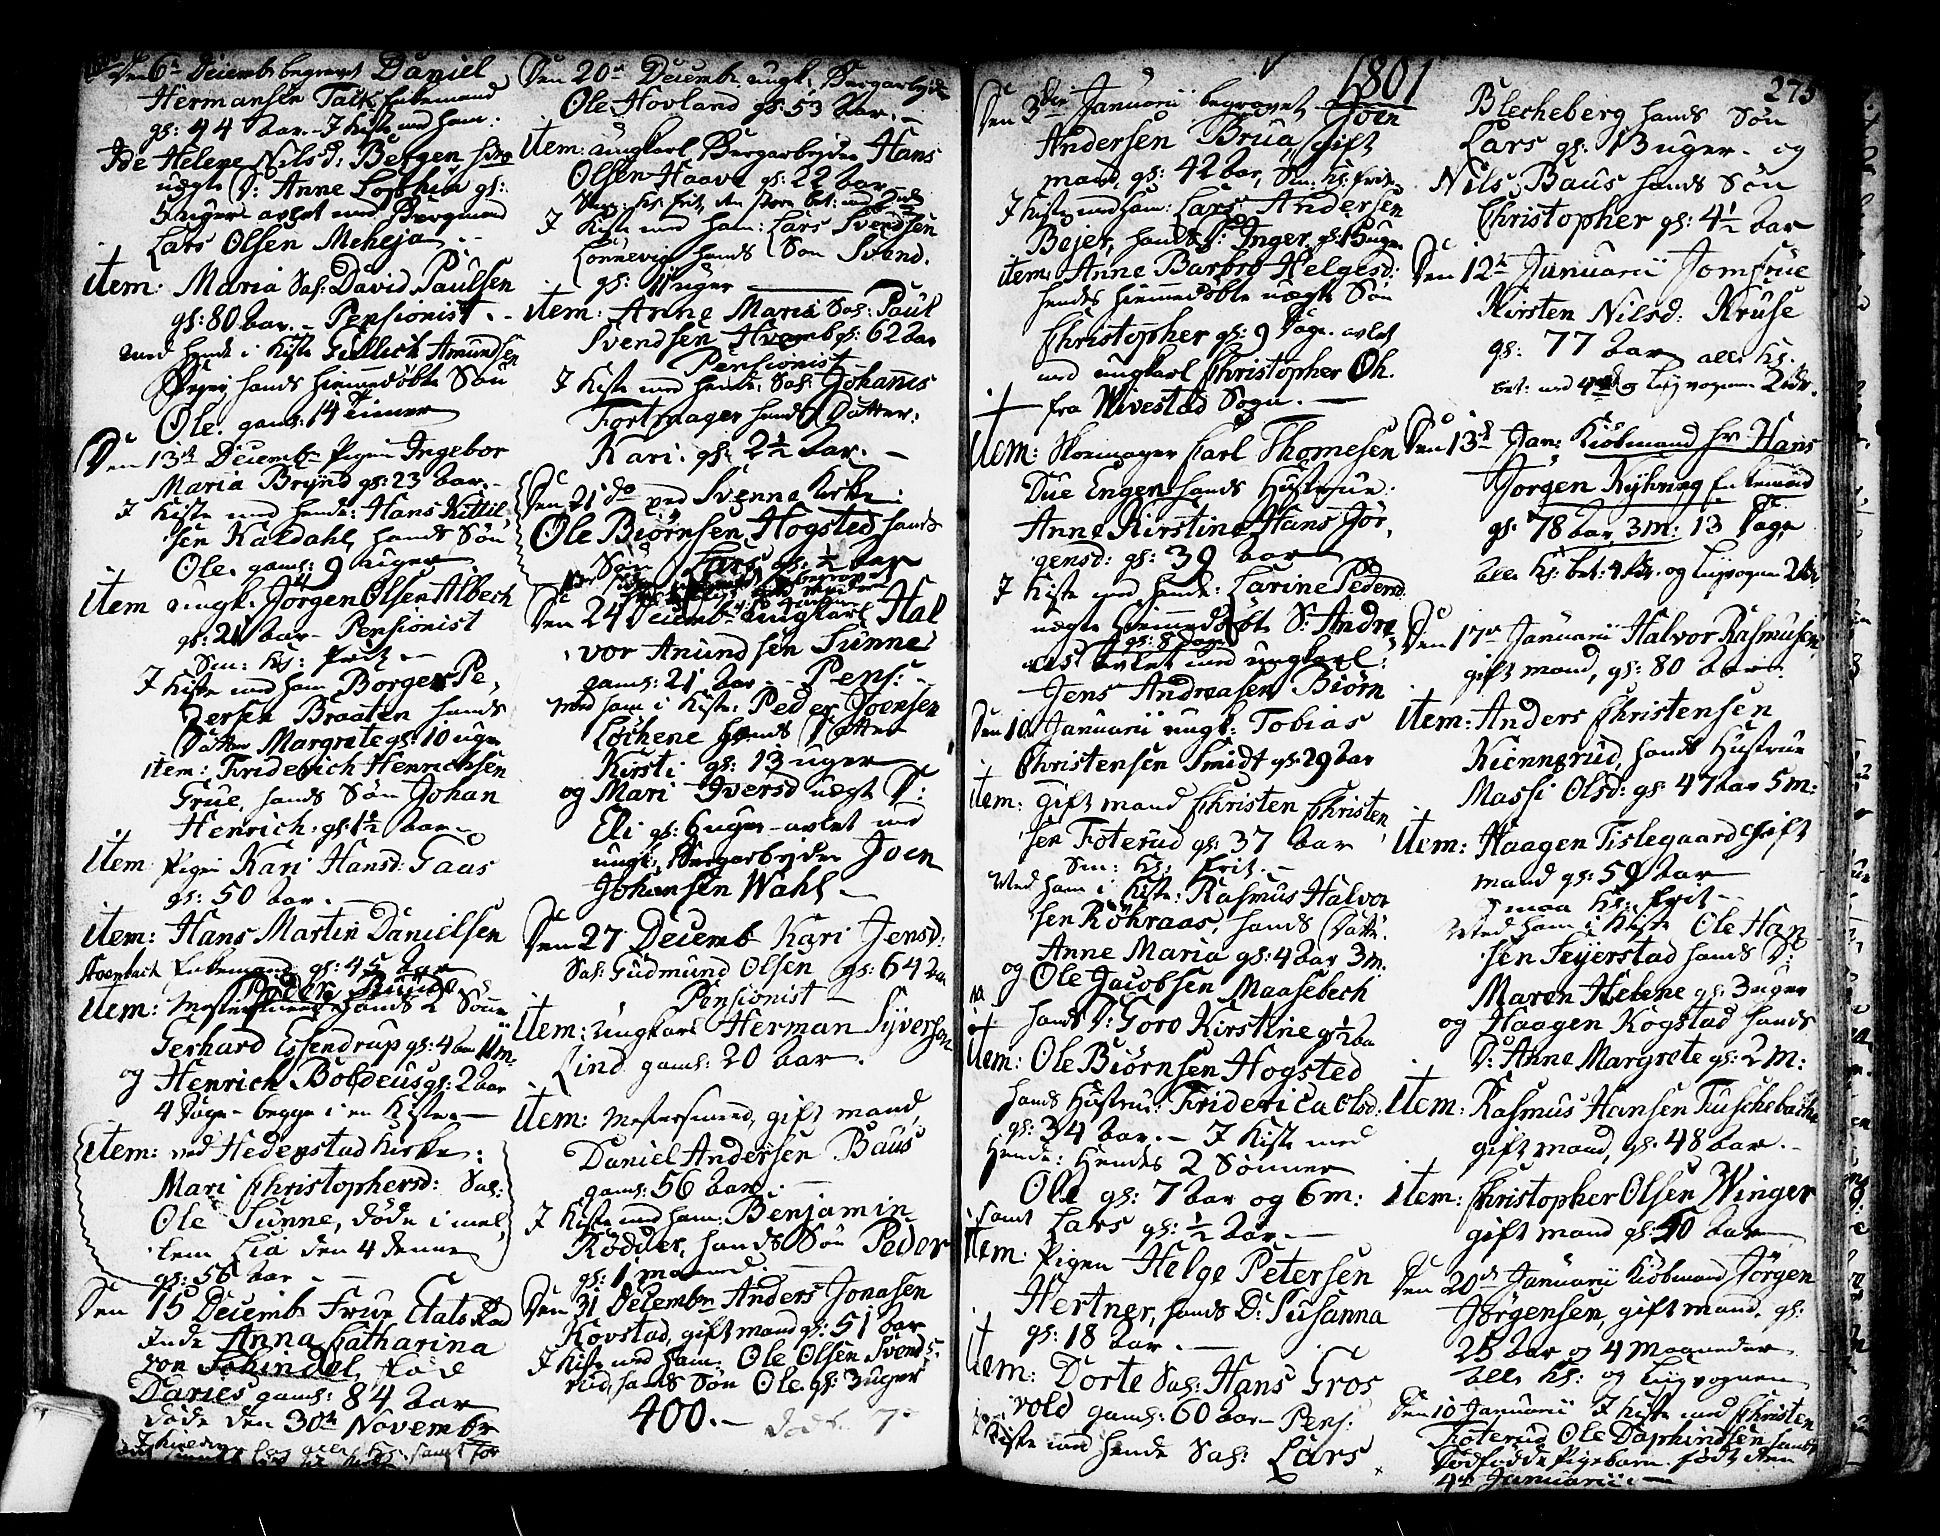 Den 6te Decembr begravet Daniel
Hermansen Talk Enkemand
gl: 44 Aar. I Kiste med ham:
Ide Helene Nilsd: Bergen
uægte D: Anne Sophia gl:
uger avlet med Bergmand
Lars Olsen Meheja
item: Maria Sal: David Paulsen
gl: 80 Aar. Pensionist.
med hende i Kiste Gullich Amundsen
hands hiemmedøbte Søn
Ole. gaml: 14 timer
Den 13de Decembr Pigen Ingebor
Maria Brynd gl: 23 Aar.
I Kiste med hende: Hans Kittil
sen Kaldahl, hands Søn
Ole. gaml: 9 uger
item ungk: Jörgen Olsen Albech
gl: 21 Aar - Pensionist
Sm: Kl: frit
I Kiste med ham Borger Pe,
dersen Braaten hands
Datter Margrete gl: 10 uger
item: Friderich Henrichsen
Grue, hands Søn Johan
Henrich. gl: 1½ Aar
item Pigen Kari Hansd: Gaas
gl: 50 Aar.
item: Hans Martin Danielsen
Enkemand gl: 45 Aar
item: Mestersmed hands 2 Sønner
Gerhard Essendrup gl: 4 Aar 11 m:
og Henrich Boldeus gl: 2 Aar
4 Dage - begge i en Kiste
item: ved Hedenstad Kirke:
Mari Christophersd: Sal:
Ole Sunne, døde i mel,
lem Lia den 4 denne
gl: 56 Aar
Den 15 Decembr Frue Etats Raad
inde Anna Catharina
von
Daries gaml: 84 Aar
døde den 30te Novembr
Den 20de Decembr ungk: Bergarbejder
Ole Hovland gl: 53 Aar.
item: ungkarl Bergarbejder Hans
Olsen Haave gl: 22 Aar
I Kiste med ham: Lars Svendsen
Lönnevig hands Søn Svend.
gl: 11 uger
item: Anne Maria Sal: Paul
Svendsen Hvamb gl: 62 Aar
Pensionist
I Kiste med hende: Sal: Johanes
hands Datter:
Kari. gl: 2½ Aar.
Den 21 do ved Svenne Kirke:
Ole Biørnsen Hogsted hands
Søn Lars gl: ½ Aar
Den 24 Decembr ungkarl Hal
vor Anundsen Sunne
gaml: 21 Aar - Pens:
med ham i Kiste: Peder Joensen
Löchene hands Datter
Kirsti gl: 13 uger
og Mari Iversd uægte D:
Eli gl: 6 uger - avlet med
ungk: Bergarbejder Joen
Johansen Wahl
Den 27 Decemb Kari Jensd:
Sal: Gudmund Olsen gl: 64 Aar
Pensionist
item: ungkarl Herman Syversen
Lind gaml: 20 Aar.
item: Mestersmed, gift mand,
Daniel Andersen Baus
gaml: 56 Aar.
I Kiste med ham: Benjamin
Rödder, hands Søn Peder
gl: 1 maaned.
Den 31 Decembr Anders Jonasen
Kovstad, gift mand gl: 51 Aar
I Kiste med ham: Ole Olsen Svends
rud, hands Søn Ole. gl: 3 uger
400.
1801
Den 3die Januarii begravet Joen
Andersen Brua, gift
mand gl: 42 Aar, Sm: Kl: frit
I Kiste med ham: Lars Andersen
Bejer, hands D: Inger,
item: Anne Barbro Helgesd:
hendes hiemmedøbte uægte Søn
Christopher gl: 9 Dage. avlet
med ungkarl Christopher Oh.
fra Hvivestad Sogn.
item: Skomager Carl Thomesen
Due Engen hands Hustrue
Anne Kirstine Hans Jör,
gensd: gl: 39 Aar
I Kiste med hende: Larine Pedersd
uægte Hiemmedøbte S: Andre
gl: 8 Dage
as avlet med ungkarl:
Jens Andreasen Biørn
Den 10 Januarii ungk: Tobias
Christensen Smidt gl: 29 Aar
item: gift mand Christen Christen,
sen Foterud gl: 37 Aar
Sm: Kl: frit.
Med ham i Kiste: Rasmus Halvor
sen Röhraas, hands Datt:
Anne Maria gl: 4 Aar 3 m.
og Ole Jacobsen Maasebech
hands D: Goro Kirstine gl: ½ Aar
item: Ole Biørnsen Hogsted
hands Hustrue: Fridericka Olsd:
gl: 34 Aar. - I Kiste med
hende: hendes 2 Sønner
Ole gl: 7 Aar og 6 m:
samt Lars gl: ½ Aar.
item Pigen Helge Petersen
Hertner, hands D: Susanna
gl: 18 Aar.
item: Dorte Sal: Hans Gros
vold gaml: 60 Aar Pens:
I Kiste med hende Sal: Lars
275
Blecheberg hands Søn
Lars gl: 13 uger. og
Nils Baus hands Søn
Christopher gl: 4½ Aar
Den 12te Januarii Jomfrue
Kirsten Nilsd: Kruse
gl: 77 Aar alle Kl.
bet: med 4 rd og Liigvognen 2 rdr.
Den 13de Jan: Kiöbmand Hr Hans
Jörgen Kyhning Enkemand
gl: 78 Aar 3 m: 13 Dage
alle Kl: bet: 4 rdr. og Liigvognen 2 rdr
Den 17de Januarii Halvor Rasmusen
gift mand, gl: 80 Aar.
item: Anders Christensen
Kienngrud, hands Hustrue
Massi Olsd: gl: 47 Aar 5 m:
item: Haagen Tislegaard gift
mand gl: 59 Aar
smaa Kl: frit
Med ham i Kiste Ole Han
sen Sejerstad hands D:
Maren Helene gl: 3 uger
og Haagen Kogstad hands
D: Anne Margrete gl: 2 m:
item: Rasmus Hansen Tuschebach
gift mand, gl: 48 Aar.
item: Christopher Olsen Winger
gift mand gl: 50 Aar
Den 20de Januarii Kiöbmand Jörgen
Jörgensen, gift mand. gl:
25 Aar og 4 Maaneder
alle Kl: og Liigvognen
Den 10 Januarii I Kiste med Christen
Foterud Ole Daphindsen hands
Dödfödde Pigebarn. født den
4de Januarii